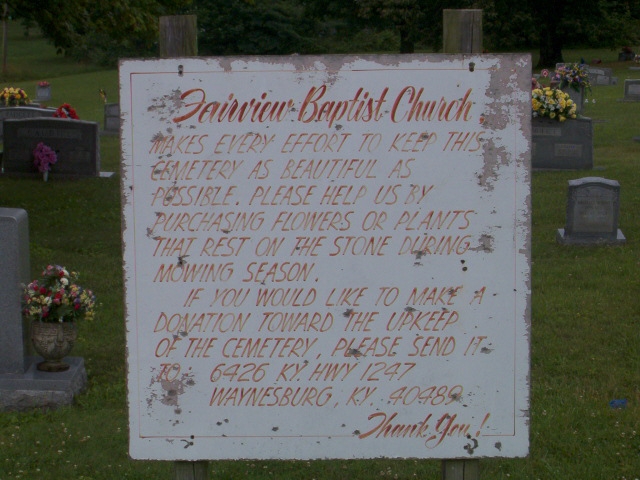 Fairview Baptist Church
MAKES EVERY EFFORT TO KEEP THIS
CEMETERY AS BEAUTIFUL AS
POSSIBLE. PLEASE HELP US BY
PURCHASING FLOWERS OR PLANTS
THAT REST ON THE STONE DURING
MOWING SEASON.
IF YOU WOULD LIKE TO MAKE A
DONATION TOWARD THE UPKEEP
OF THE CEMETERY, PLEASE SEND IT
TO 6426 KY. HWY 1247
WAYNESBURG, KY. 40489
Thank You!